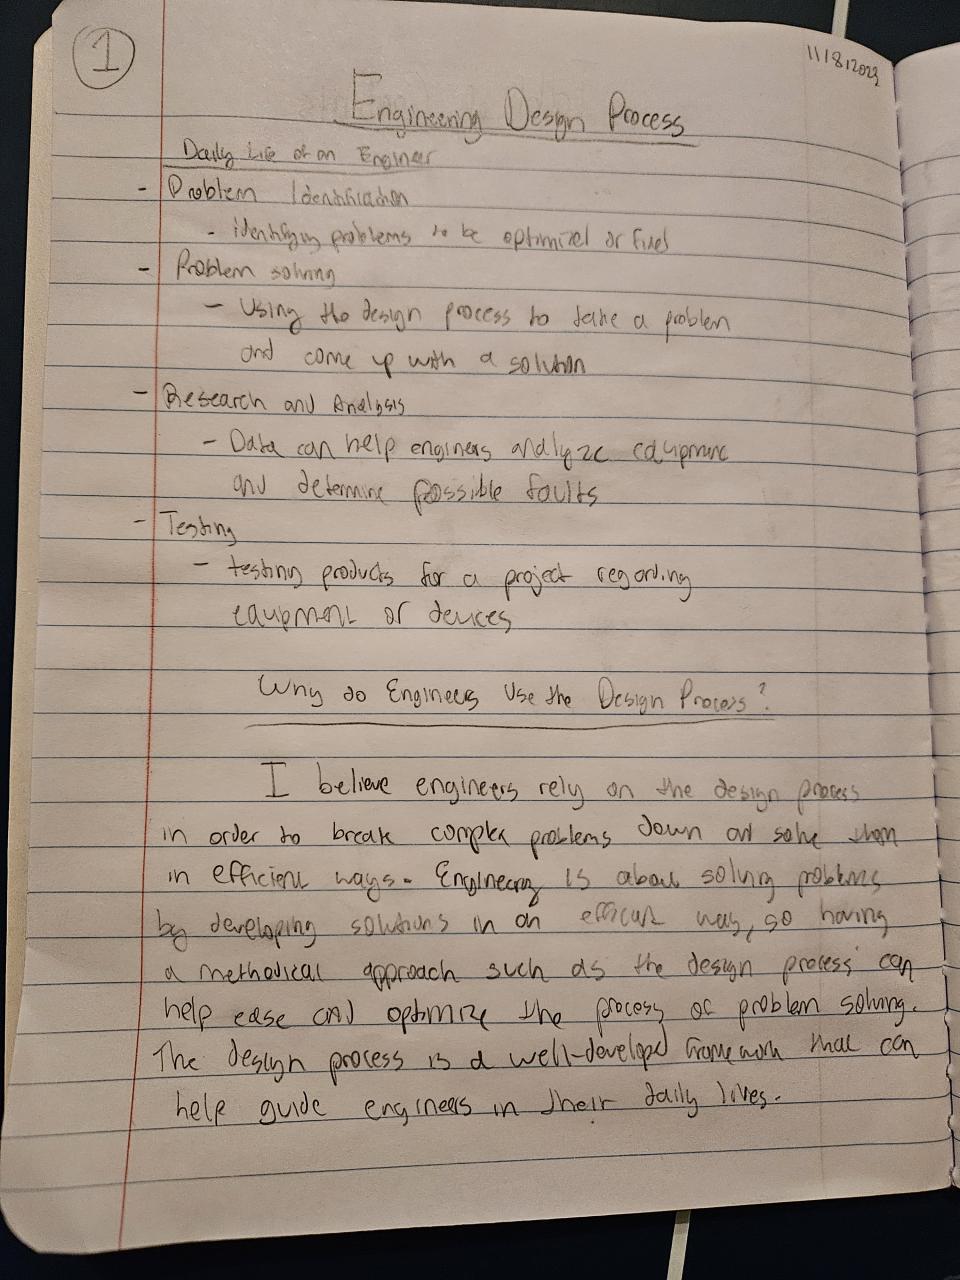 1
11/8/2023
Engineering Design Process
Daily Life of an Engineer
- Problem Identification
- identifying problems to be optimized or fixed
- Problem solving
- Using the design process to take a problem
and come up with a solution
- Research and Analysis
- Data can help engineers analyze equipment
and determine possible faults
- Testing
- testing products for a project regarding
equipment or devices
Why do Engineers Use the Design Process?
I believe engineers rely on the design process
in order to break complex problems down and solve them
in efficient ways. Engineering is about solving problems
by developing solutions in an efficient way, so having
a methodical approach such as the design process can
help ease and optimize the process of problem solving.
The design process is a well-developed framework that can
help guide engineers in their daily lives.